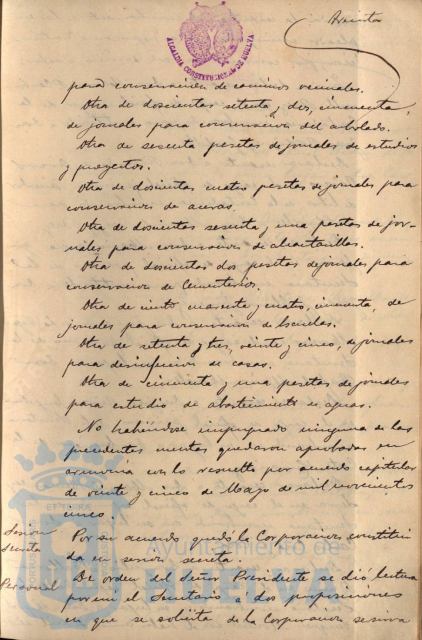 ALCALDIA CONSTITUCIONAL DE HUELVA
para conservación de caminos vecinales.
Otra de doscientas setenta y dos, cincuenta,
de jornales para conservacion del arbolado.
Otra de sesenta pesetas de jornales de estudios
y proyectos.
Otra de doscientas cuatro pesetas de jornales para
conservacion de aceras.
Otra de doscientas sesenta y una pesetas de jor-
nales para conservacion de alcantarillas.
Otra de doscientas dos pesetas de jornales para
conservacion de Cementerios.
Otra de ciento cuarenta y cuatro, cincuenta, de
jornales para conservacion de Escuelas.
Otra de setenta y tres, veinte y cinco, de jornales
para desinfeccion de casas.
Otra de cincuenta y una pesetas de jornales
para estudio de abastecimiento de aguas.
No habiéndose impugnado ninguna de las
precedentes cuentas quedaron aprobadas en
armonía con lo resuelto por acuerdo capitular
de veinte y cinco de Mayo de mil novecientos
cinco.
Sesion
secreta
Por su acuerdo quedó la Corporacion constitui
da en sesion secreta.
Personal
De orden del Señor Presidente se dió lectura
por mí el Secretario á dos proposiciones
en que se solicita de la Corporacion se sirva
Ayuntamiento de
HUELVA